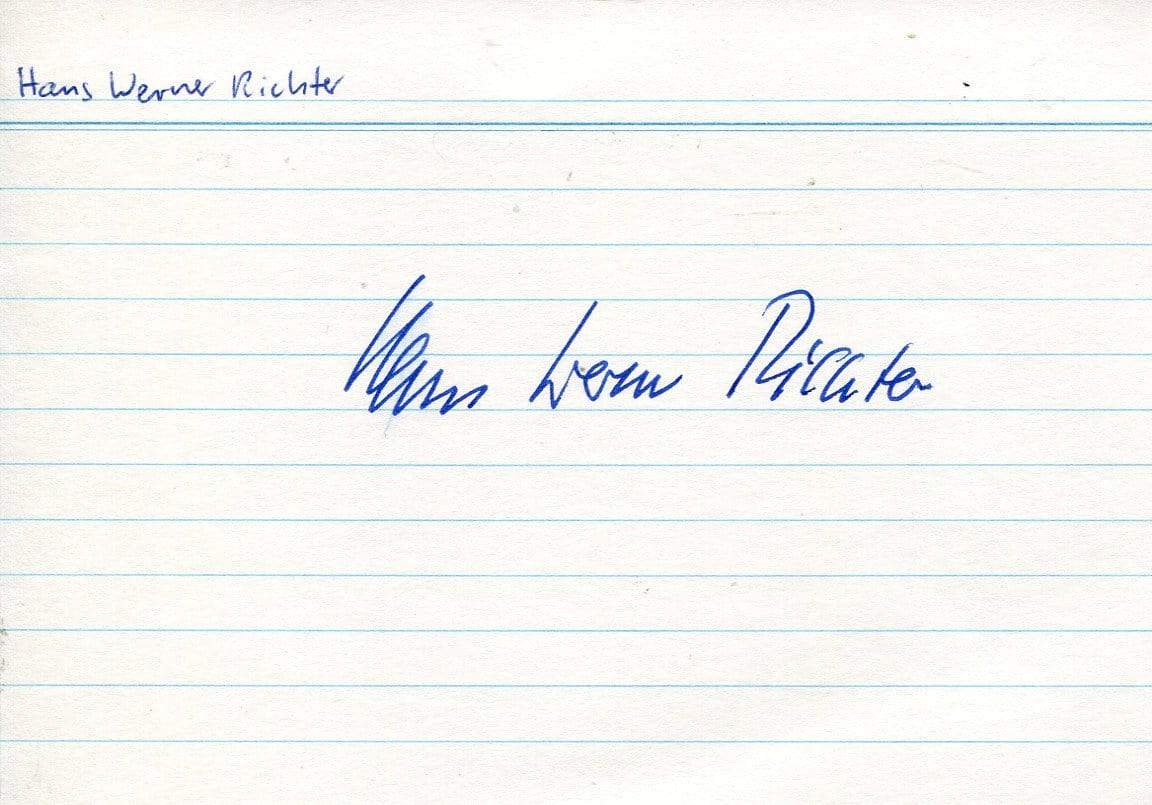 Hans Werner Richter
Hans Werner Richter